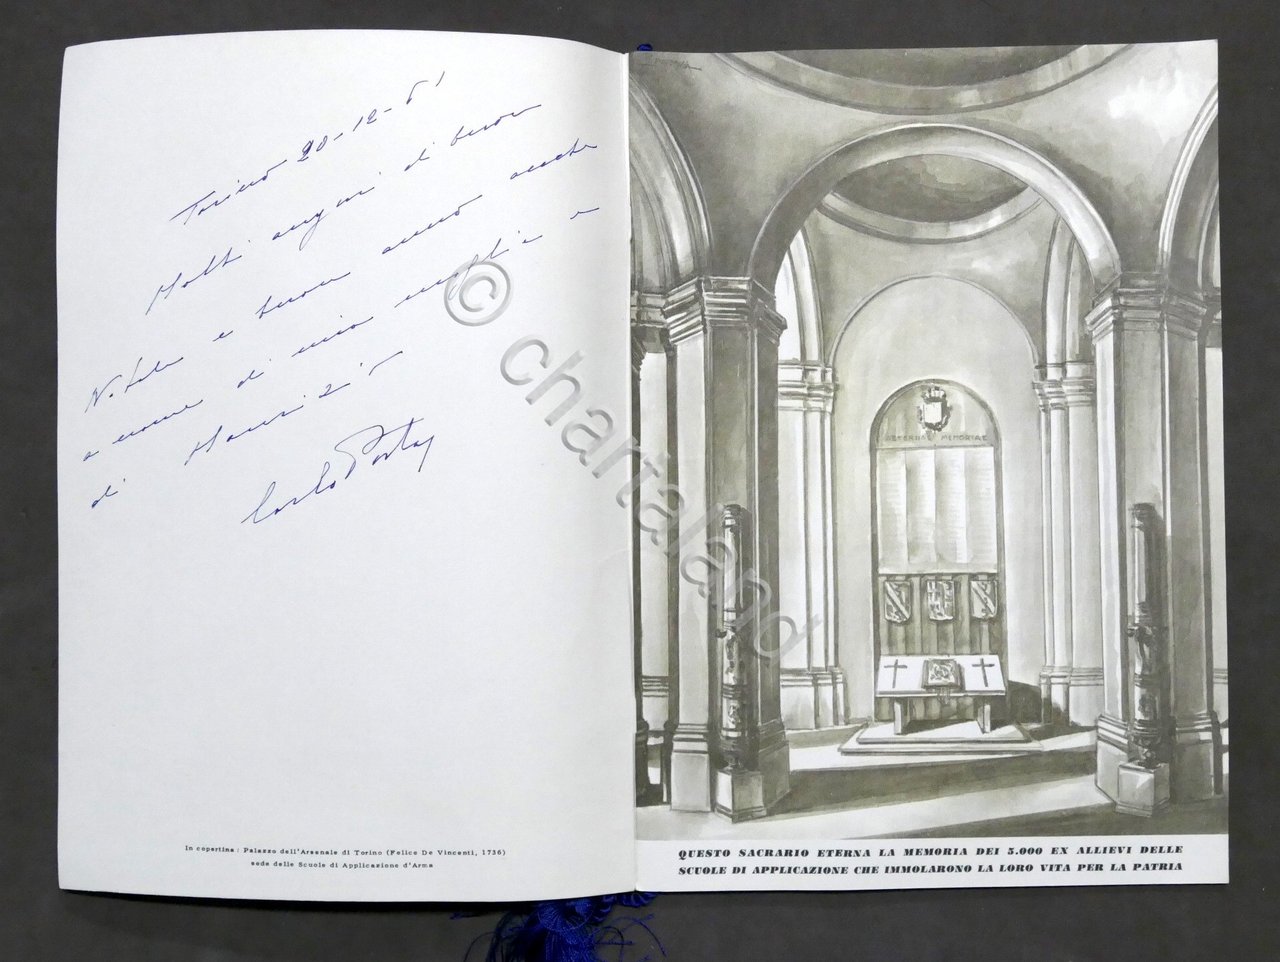 Torino 20-12-61
Molti auguri di buon
Natale e buon anno anche
a nome di mia moglie e
di Maurizio
Carlo Porta
In copertina : Palazzo dell'Arsenale di Torino (Felice De Vincenti, 1736)
sede delle Scuole di Applicazione d'Arma
AETERNAE MEMORIAE
QUESTO SACRARIO ETERNA LA MEMORIA DEI 5.000 EX ALLIEVI DELLE
SCUOLE DI APPLICAZIONE CHE IMMOLARONO LA LORO VITA PER LA PATRIA
© chartaland